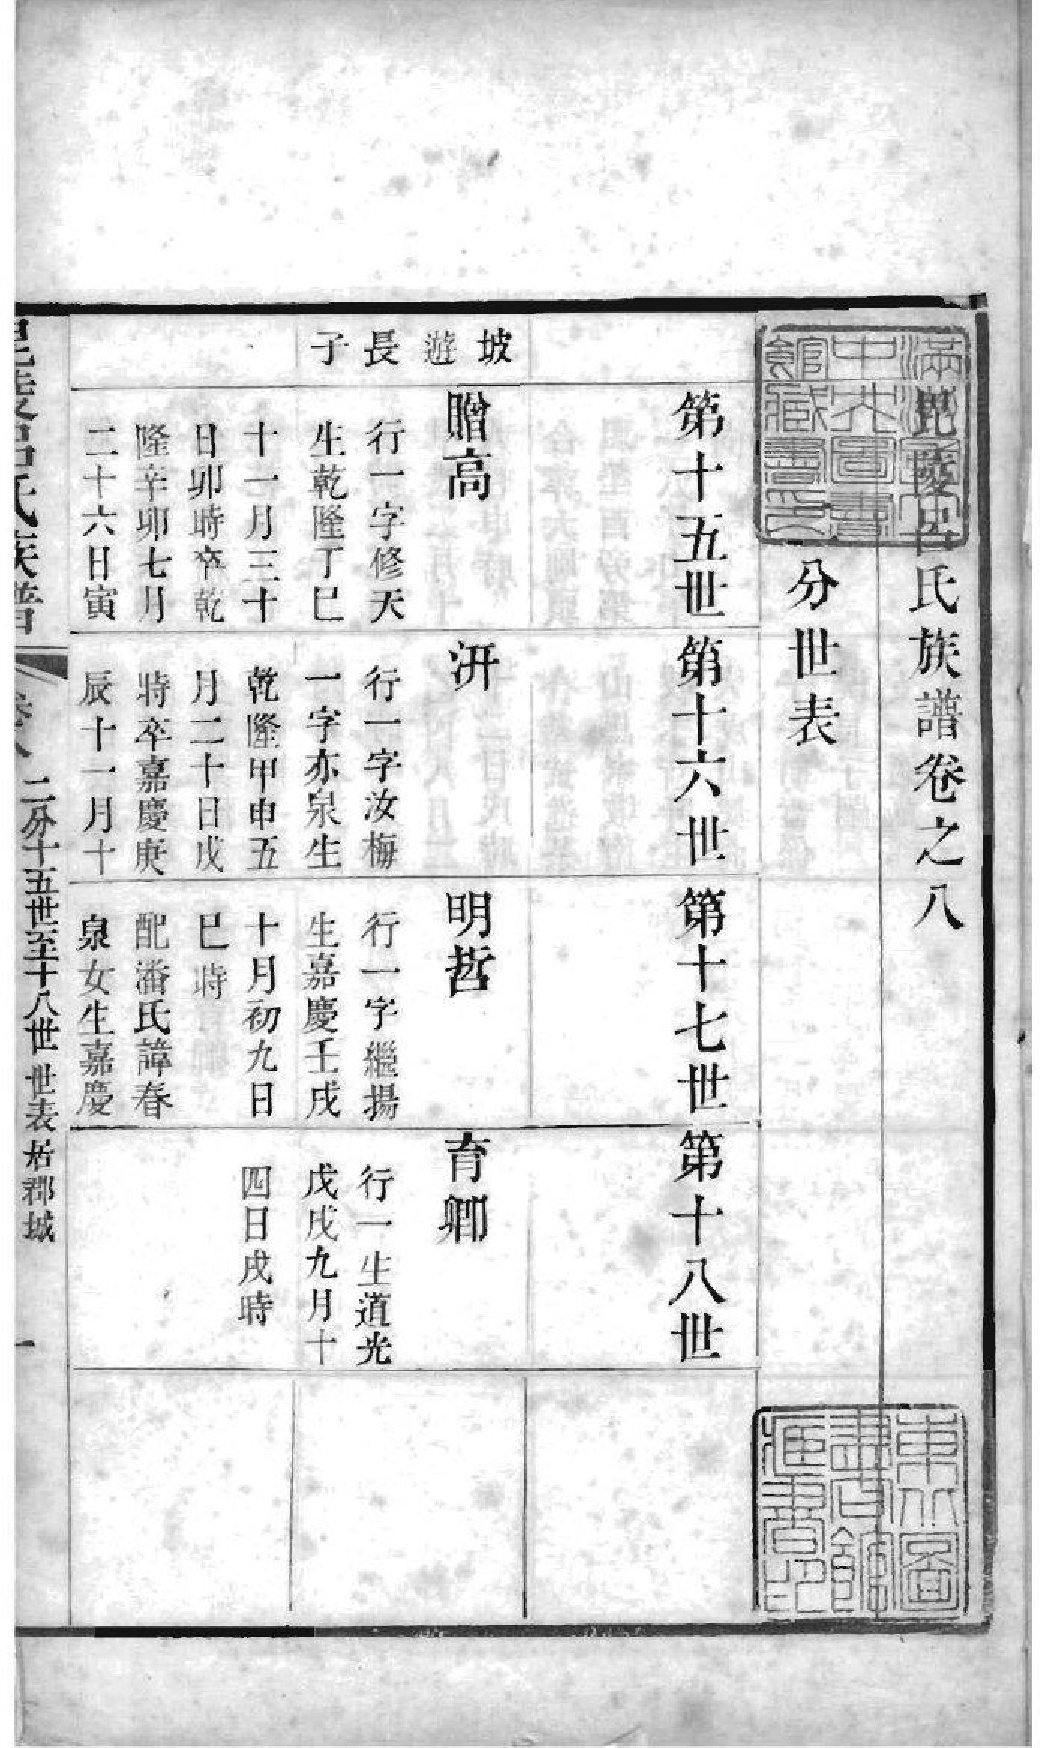 毘陵呂氏族譜卷之八
分世表
第十五世
第十六世
第十七世
第十八世
坡遊長子
贈高
行一字修天
生乾隆丁巳
十一月三十
日卯時卒乾
隆辛卯七月
二十六日寅
汧
行一字汝梅
一字亦泉生
乾隆甲申五
月二十日戌
時卒嘉慶庚
辰十一月十
明哲
行一字繼揚
生嘉慶壬戌
十月初九日
巳時
配潘氏諱春
泉女生嘉慶
育卿
行一生道光
戊戌九月十
四日戌時
毘陵呂氏族譜
卷八
二分十五世至十八世世表居郡城
一